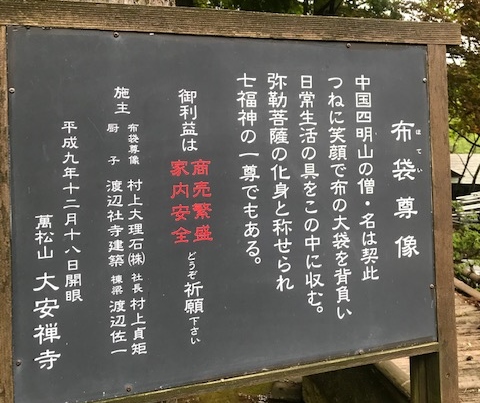 布袋尊像
ほてい
中国四明山の僧・名は契此
つねに笑顔で布の大袋を背負い
日常生活の具をこの中に収む。
弥勒菩薩の化身と称せられ
七福神の一尊でもある。
御利益は 商売繁盛 家内安全 どうぞ祈願下さい
施主 布袋尊像 村上大理石㈱ 社長 村上貞矩
厨子 渡辺社寺建築 棟梁 渡辺佐一
平成九年十二月十八日開眼
萬松山 大安禅寺